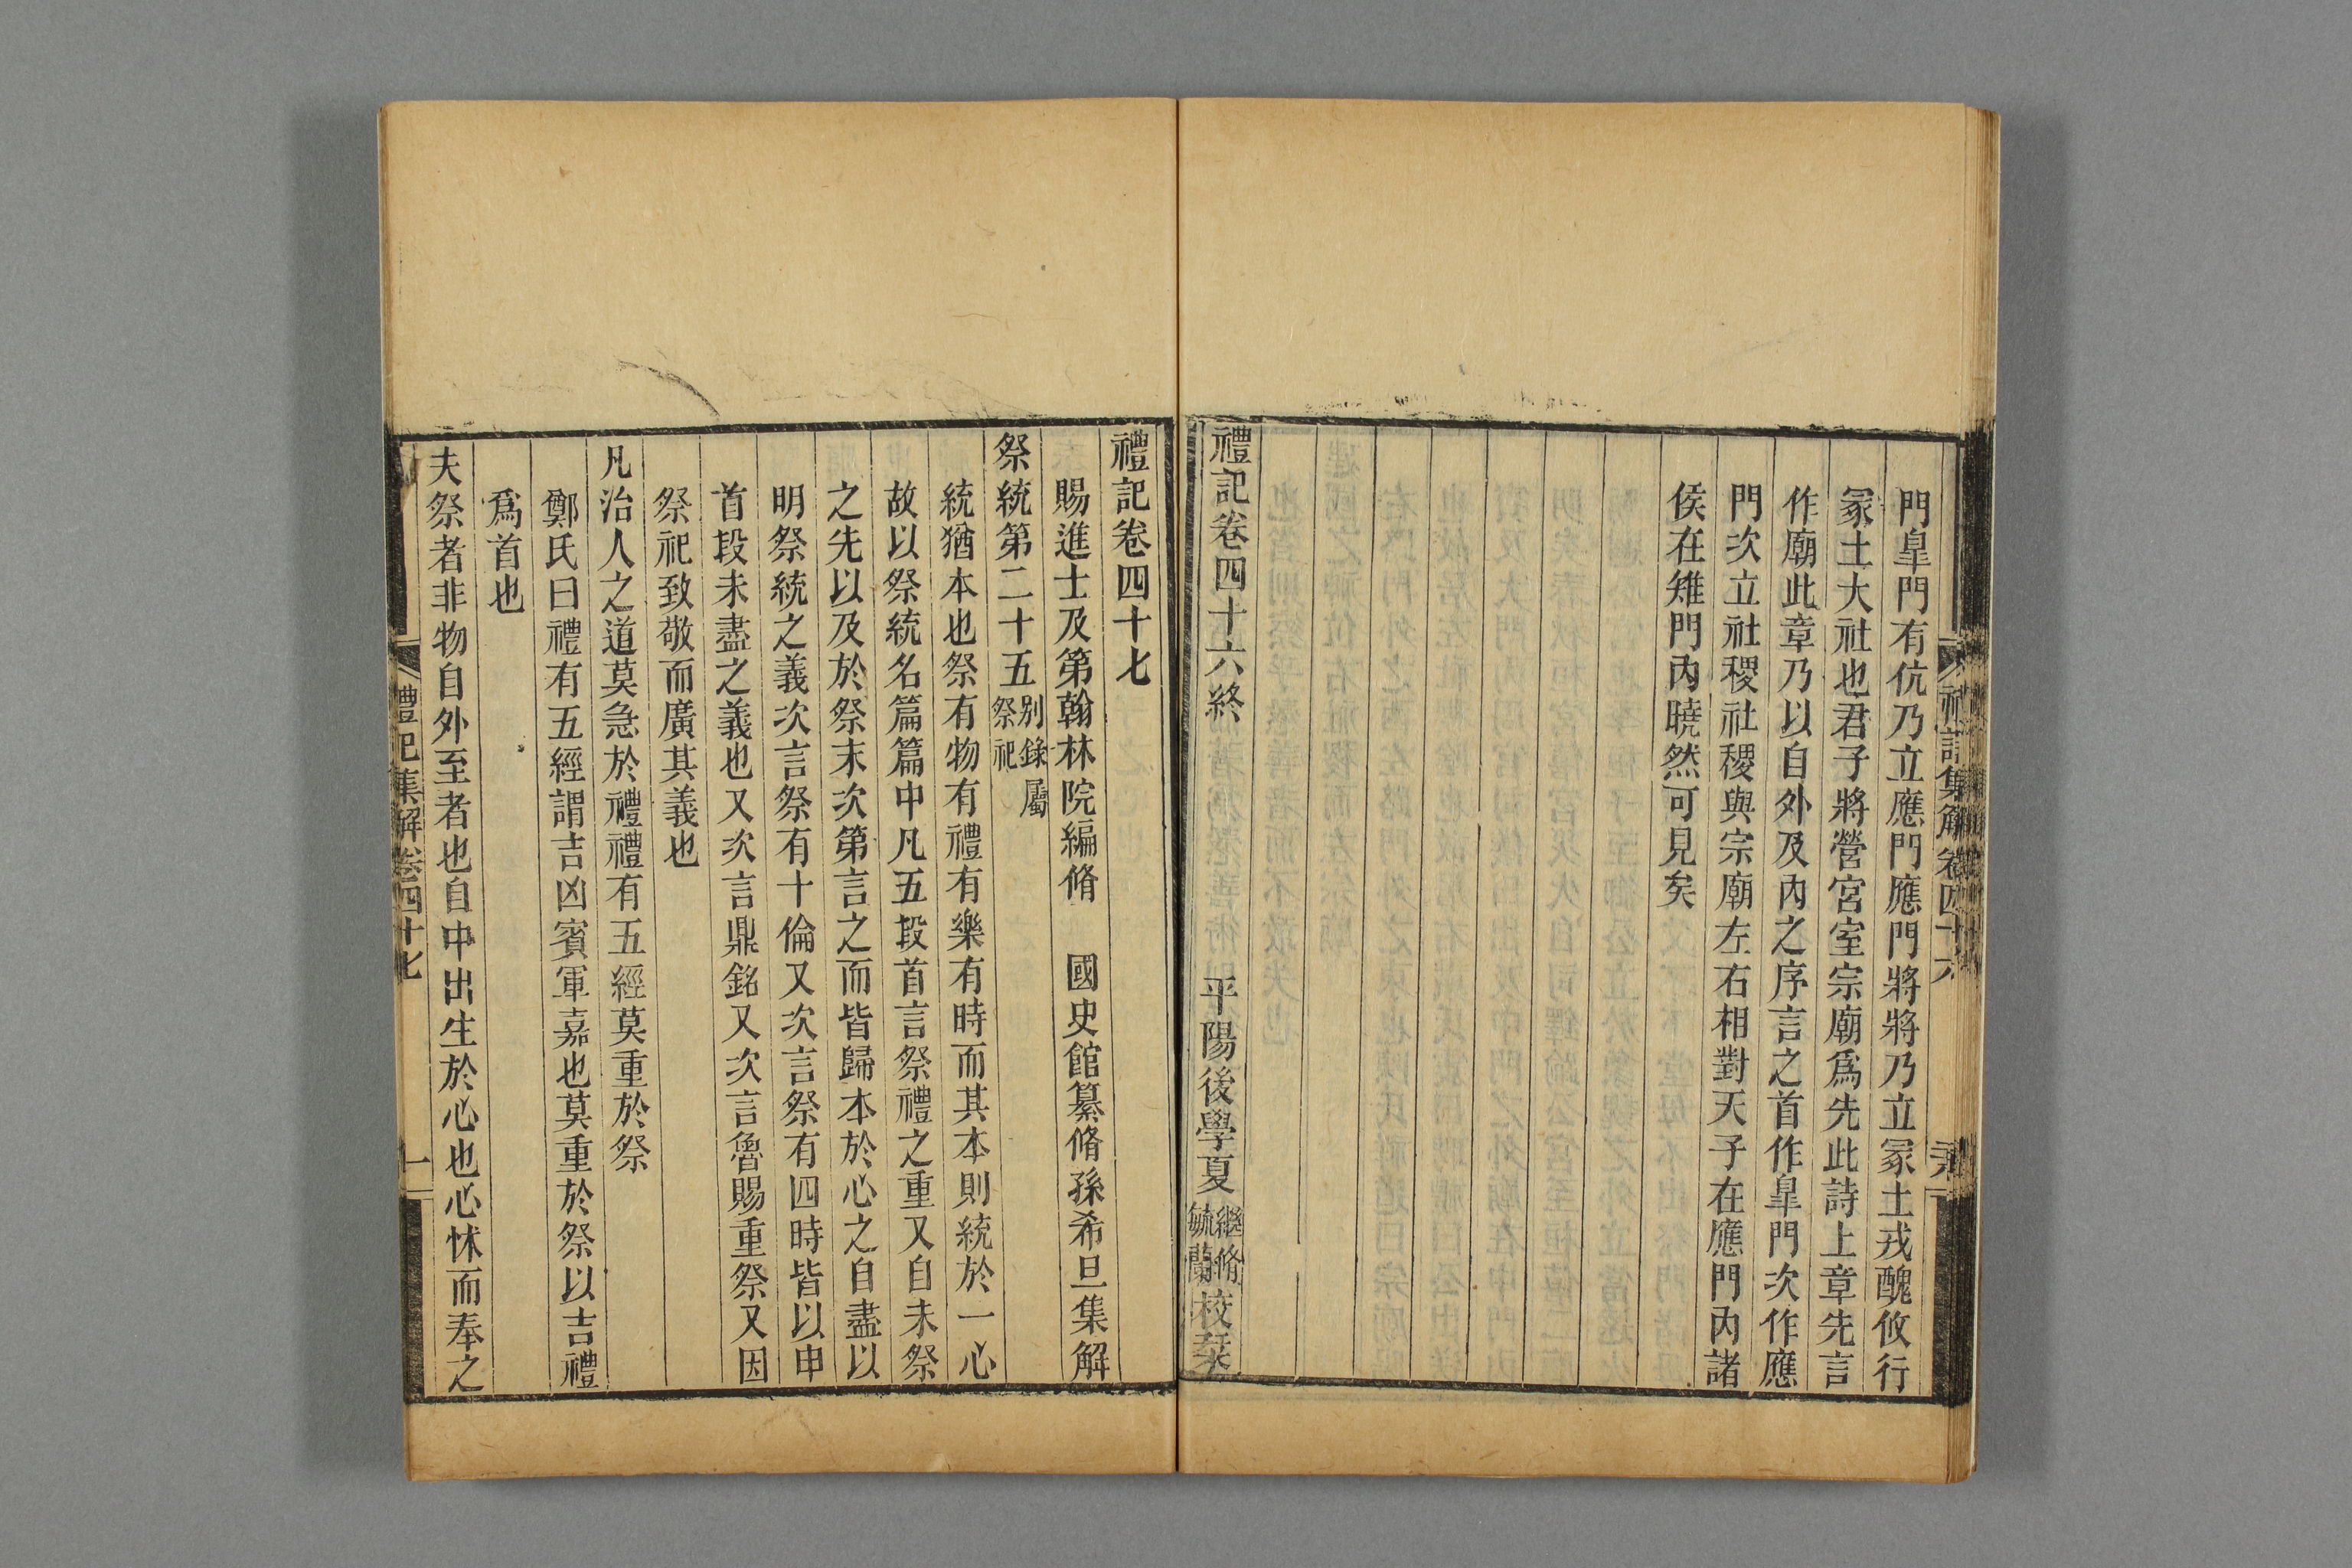 門皐門有伉乃立應門應門將將乃立冢土戎醜攸行
冢土大社也君子將營宮室宗廟爲先此詩上章先言
作廟此章乃以自外及內之序言之首作皐門次作應
門次立社稷社稷與宗廟左右相對天子在應門內諸
侯在雉門內曉然可見矣
禮記卷四十六終
平陽後學夏繼脩毓蘭校栞
禮記集解卷四十六
禮記卷四十七
賜進士及第翰林院編脩 國史館纂脩孫希旦集解
祭統第二十五別錄屬祭祀
統猶本也祭有物有禮有樂有時而其本則統於一心
故以祭統名篇篇中凡五段首言祭禮之重又自未祭
之先以及於祭末次第言之而皆歸本於心之自盡以
明祭統之義次言祭有十倫又次言祭有四時皆以申
首段未盡之義也又次言鼎銘又次言魯賜重祭又因
祭祀致敬而廣其義也
凡治人之道莫急於禮禮有五經莫重於祭
鄭氏曰禮有五經謂吉凶賓軍嘉也莫重於祭以吉禮
爲首也
夫祭者非物自外至者也自中出生於心也心怵而奉之
禮記集解卷四十七
一